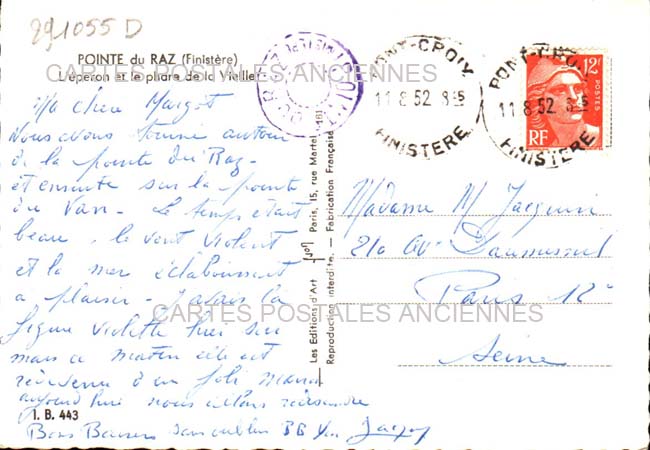 291055 D
POINTE du RAZ (Finistère)
L'éperon et le phare de la Vieille
CARTES POSTALES ANCIENNES
Ma chère Margot
Nous avons tourné autour
de la pointe du Raz-
et ensuite sur la pointe
du Van - Le temps était
beau, le vent violent
et la mer éclaboussant
à plaisir - J'avais la
figure violette hier soir
mais ce matin elle est
revenue d'un joli marron
aujourd'hui nous allons redescendre
Bons Baisers sans oublier BB
I. B. 443
— Les Editions d'Art Paris, 15, rue Martel
Reproduction interdite. — Fabrication Française
PONT-CROIX
11 8 52 8 45
FINISTERE
PONT-CROIX
11 8 52 8 45
FINISTERE
12F
POSTES
RF
Madame M Jacquin
210 Av Daumesnil
Paris 12e
Seine
CARTES POSTALES ANCIENNES